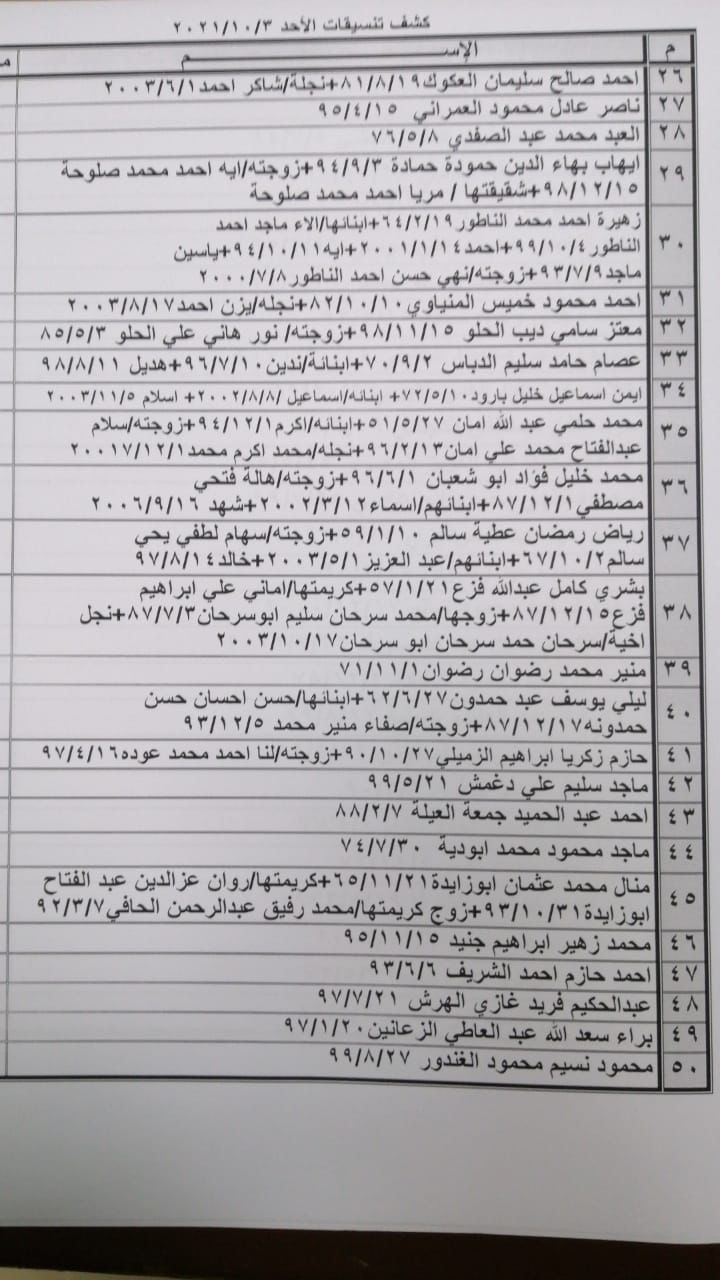 كشف تنسيقات الأحد ٢٠٢١/١٠/٣
م الإســـــــــم
٢٦ احمد صالح سليمان العكوك٨١/٨/١٩+نجلة/شاكر احمد٢٠٠٣/٦/١
٢٧ ناصر عادل محمود العمراني ٩٥/٤/١٥
٢٨ العبد محمد عبد الصفدي ٧٦/٥/٨
٢٩ ايهاب بهاء الدين حمودة حمادة ٩٤/٩/٣+زوجته/ايه احمد محمد صلوحة
٩٨/١٢/١٥+شقيقتها / مريا احمد محمد صلوحة
٣٠ زهيرة احمد محمد الناطور٦٤/٢/١٩+ابنائها/الاء ماجد احمد
الناطور٩٩/١٠/٤+احمد٢٠٠١/١/١٤+ايه٩٤/١٠/١١+ياسين
ماجد٩٣/٧/٩+زوجته/نهي حسن احمد الناطور٢٠٠٠/٧/٨
٣١ احمد محمود خميس المنياوي٨٢/١٠/١٠+نجله/يزن احمد٢٠٠٣/٨/١٧
٣٢ معتز سامي ديب الحلو ٩٨/١١/١٥+زوجته/ نور هاني علي الحلو ٨٥/٥/٣
٣٣ عصام حامد سليم الدباس ٧٠/٩/٢+ابنائة/ندين٩٦/٧/١٠+هديل ٩٨/٨/١١
٣٤ ايمن اسماعيل خليل بارود٧٢/٥/١٠+ ابنائه/اسماعيل /٢٠٠٢/٨/٨+ اسلام ٢٠٠٣/١١/٥
٣٥ محمد حلمي عبد الله امان ٥١/٥/٢٧+ابنائه/اكرم٩٤/١٢/١+زوجته/سلام
عبدالفتاح محمد علي امان٩٦/٢/١٣+نجله/محمد اكرم محمد٢٠٠١٧/١٢/١
٣٦ محمد خليل فؤاد ابو شعبان ٩٦/٦/١+زوجته/هالة فتحي
مصطفي٨٧/١٢/١+ابنائهم/اسماء٢٠٠٢/٣/١٢+شهد ٢٠٠٦/٩/١٦
٣٧ رياض رمضان عطية سالم ٥٩/١/١٠+زوجته/سهام لطفي يحي
سالم٦٧/١٠/٢+ابنائهم/عبد العزيز٢٠٠٣/٥/١+خالد٩٧/٨/١٤
٣٨ بشري كامل عبدالله فزع٥٧/١/٢١+كريمتها/اماني علي ابراهيم
فزع٨٧/١٢/١٥+زوجها/محمد سرحان سليم ابوسرحان٨٧/٧/٣+نجل
اخية/سرحان حمد سرحان ابو سرحان٢٠٠٣/١٠/١٧
٣٩ منير محمد رضوان رضوان٧١/١١/١
٤٠ ليلي يوسف عبد حمدون٦٢/٦/٢٧+ابنائها/حسن احسان حسن
حمدونه٨٧/١٢/١٧+زوجته/صفاء منير محمد ٩٣/١٢/٥
٤١ حازم زكريا ابراهيم الزميلي٩٠/١٠/٢٧+زوجته/لنا احمد محمد عوده٩٧/٤/١٦
٤٢ ماجد سليم علي دغمش ٩٩/٥/٢١
٤٣ احمد عبد الحميد جمعة العيلة ٨٨/٢/٧
٤٤ ماجد محمود محمد ابودية ٧٤/٧/٣٠
٤٥ منال محمد عثمان ابوزايدة٦٥/١١/٢١+كريمتها/روان عزالدين عبد الفتاح
ابوزايدة٩٣/١٠/٣١+زوج كريمتها/محمد رفيق عبدالرحمن الحافي٩٢/٣/٧
٤٦ محمد زهير ابراهيم جنيد ٩٥/١١/١٥
٤٧ احمد حازم احمد الشريف ٩٣/٦/٦
٤٨ عبدالحكيم فريد غازي الهرش ٩٧/٧/٢١
٤٩ براء سعد الله عبد العاطي الزعانين٩٧/١/٢٠
٥٠ محمود نسيم محمود الغندور ٩٩/٨/٢٧